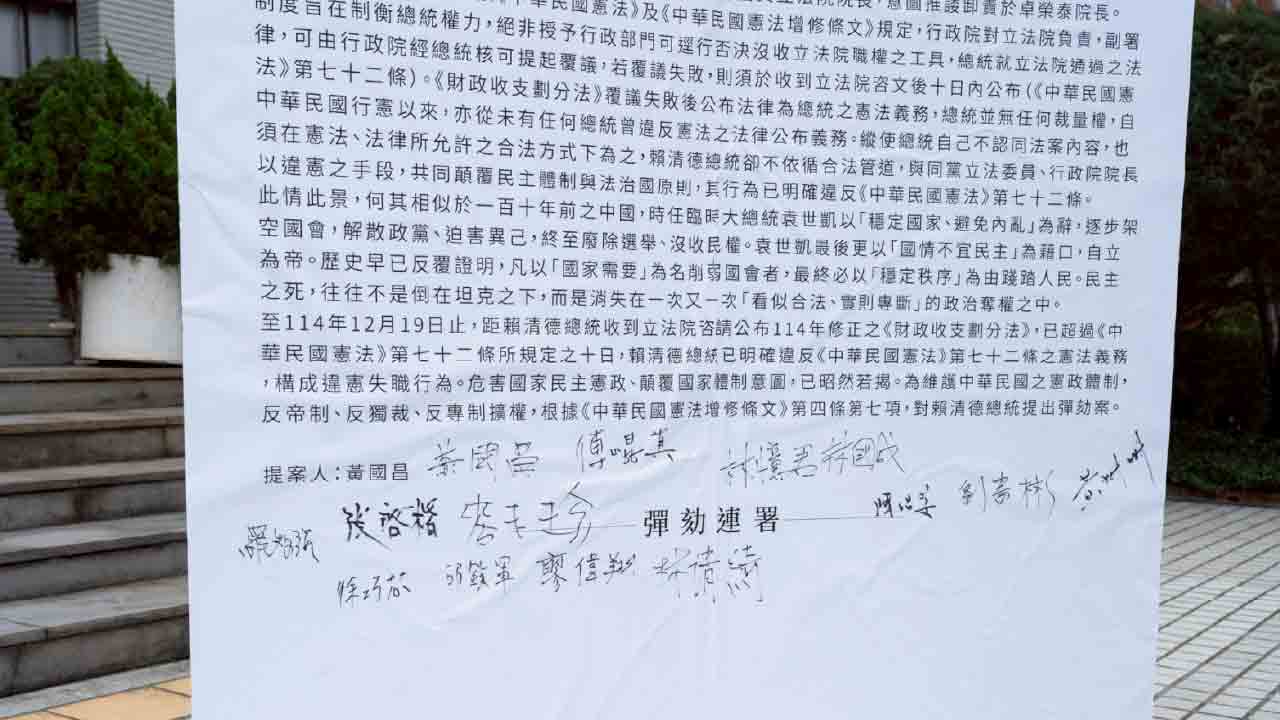 《中華民國憲法》及《中華民國憲法增修條文》規定，行政院對立法院負責，副署
制度旨在制衡總統權力，絕非授予行政部門可逕行否決沒收立法院職權之工具，總統就立法院通過之法
律，可由行政院經總統核可提起覆議，若覆議失敗，則須於收到立法院咨文後十日內公布(《中華民國憲
法》第七十二條)。《財政收支劃分法》覆議失敗後公布法律為總統之憲法義務，總統並無任何裁量權，自
中華民國行憲以來，亦從未有任何總統曾違反憲法之法律公布義務。縱使總統自己不認同法案內容，也
須在憲法、法律所允許之合法方式下為之，賴清德總統卻不依循合法管道，與同黨立法委員、行政院院長
以違憲之手段，共同顛覆民主體制與法治國原則，其行為已明確違反《中華民國憲法》第七十二條。
此情此景，何其相似於一百十年前之中國，時任臨時大總統袁世凱以「穩定國家、避免內亂」為辭，逐步架
空國會，解散政黨、迫害異己，終至廢除選舉、沒收民權。袁世凱最後更以「國情不宜民主」為藉口，自立
為帝。歷史早已反覆證明，凡以「國家需要」為名削弱國會者，最終必以「穩定秩序」為由踐踏人民。民主
之死，往往不是倒在坦克之下，而是消失在一次又一次「看似合法、實則專斷」的政治奪權之中。
至114年12月19日止，距賴清德總統收到立法院咨請公布114年修正之《財政收支劃分法》，已超過《中
華民國憲法》第七十二條所規定之十日，賴清德總統已明確違反《中華民國憲法》第七十二條之憲法義務
，構成違憲失職行為。危害國家民主憲政、顛覆國家體制意圖，已昭然若揭。為維護中華民國之憲政體制，
反帝制、反獨裁、反專制擴權，根據《中華民國憲法增修條文》第四條第七項，對賴清德總統提出彈劾案。
提案人：黃國昌 黃國昌 傅崐萁 林國成
羅智強 張啓楷 麥玉珍 彈劾連署 劉書彬
徐巧芯 邱鎮軍 廖偉翔 林倩綺